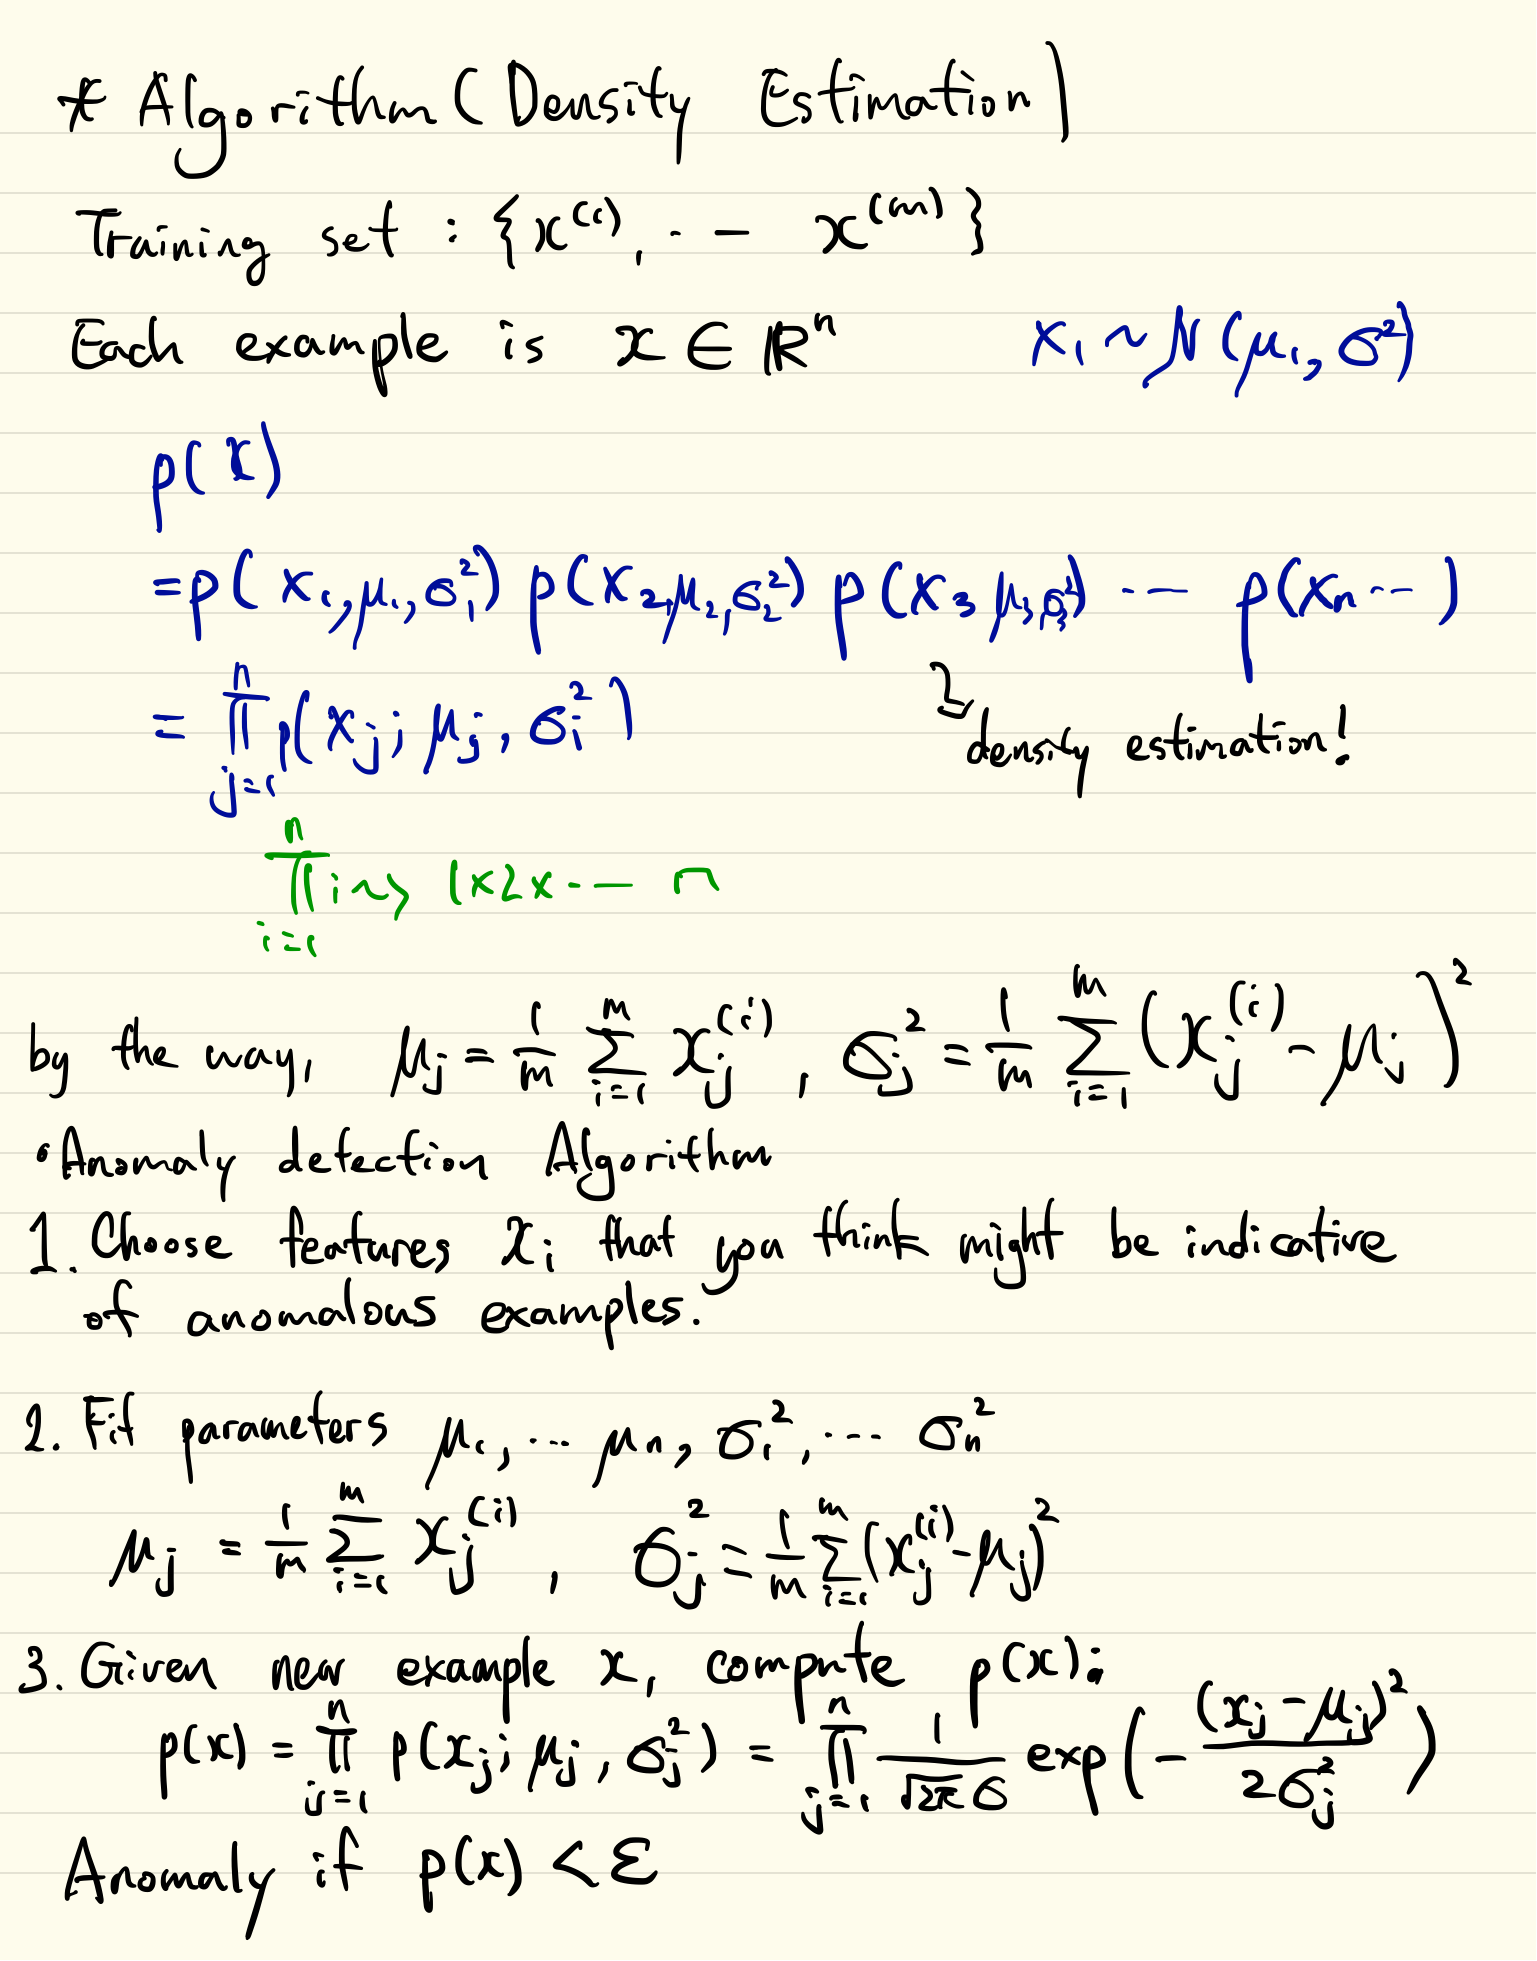 * Algorithm (Density Estimation)
Training set : {x^(1), ·-- x^(m)}
Each example is x ∈ ℝ^n    x₁ ~ N(μ₁, σ²)
p(x)
= p(x₁, μ₁, σ₁²) p(x₂, μ₂, σ₂²) p(x₃ μ₃, σ₃²) --- p(xn ---)
= ∏_{j=1}^{n} p(xj; μj, σi²)    density estimation!
∏_{i=1}^{n} i ~> 1x2x--- n
by the way, μj = 1/m ∑_{i=1}^{m} xj^(i), σj² = 1/m ∑_{i=1}^{m} (xj^(i) - μj)²
• Anomaly detection Algorithm
1. Choose features xi that you think might be indicative
of anomalous examples.
2. Fit parameters μ₁, ... μn, σ₁², ... σn²
μj = 1/m ∑_{i=1}^{m} xj^(i), σj² = 1/m ∑_{i=1}^{m} (xj^(i) - μj)²
3. Given new example x, compute p(x):
p(x) = ∏_{j=1}^{n} p(xj; μj, σj²) = ∏_{j=1}^{n} 1/(√2π σ) exp(- (xj - μj)² / 2σj²)
Anomaly if p(x) < ε